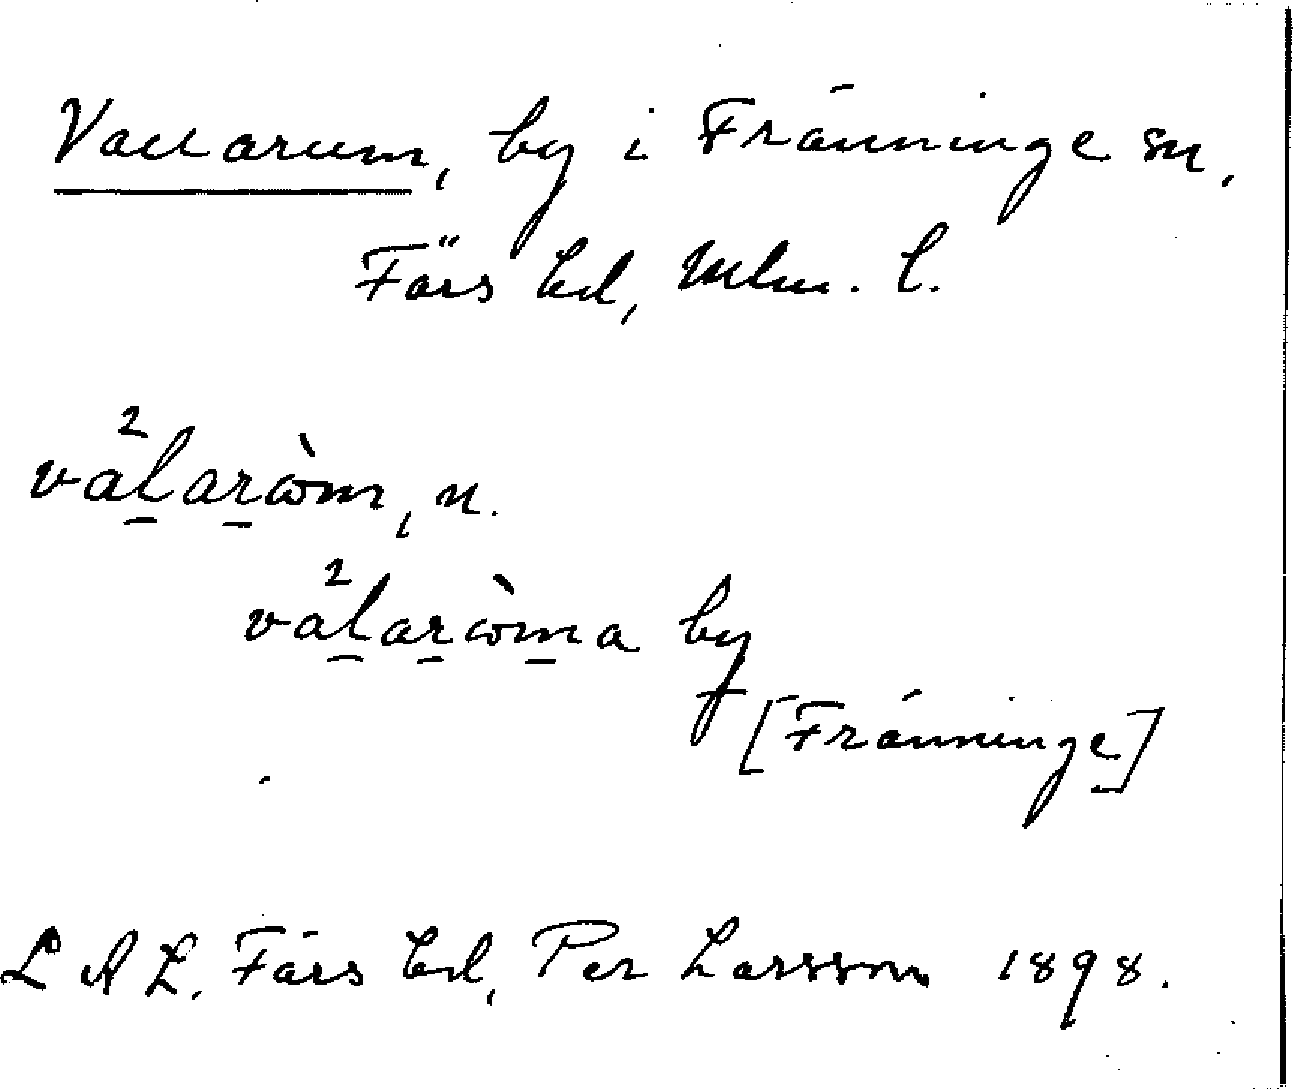 Vallarum, by i Fränninge sn,
Färs hd, Mlm. l.
va²l̠ar̠ὼm, n.
va²l̠ar̠ὼm̠a by
[Fränninge]
L A L. Färs hd, Per Larsson 1898.